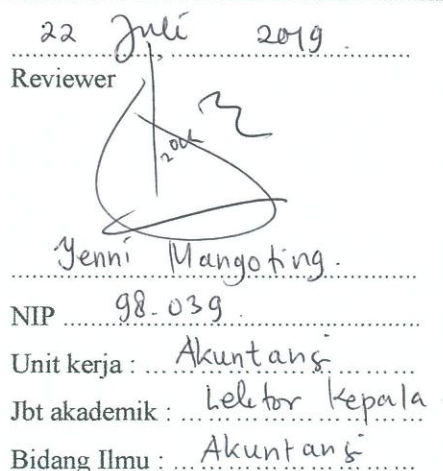 22 Juli 2019.
Reviewer
Yenni Mangoting.
NIP 98.039.
Unit kerja : Akuntansi
Jbt akademik : Lektor Kepala
Bidang Ilmu : Akuntansi